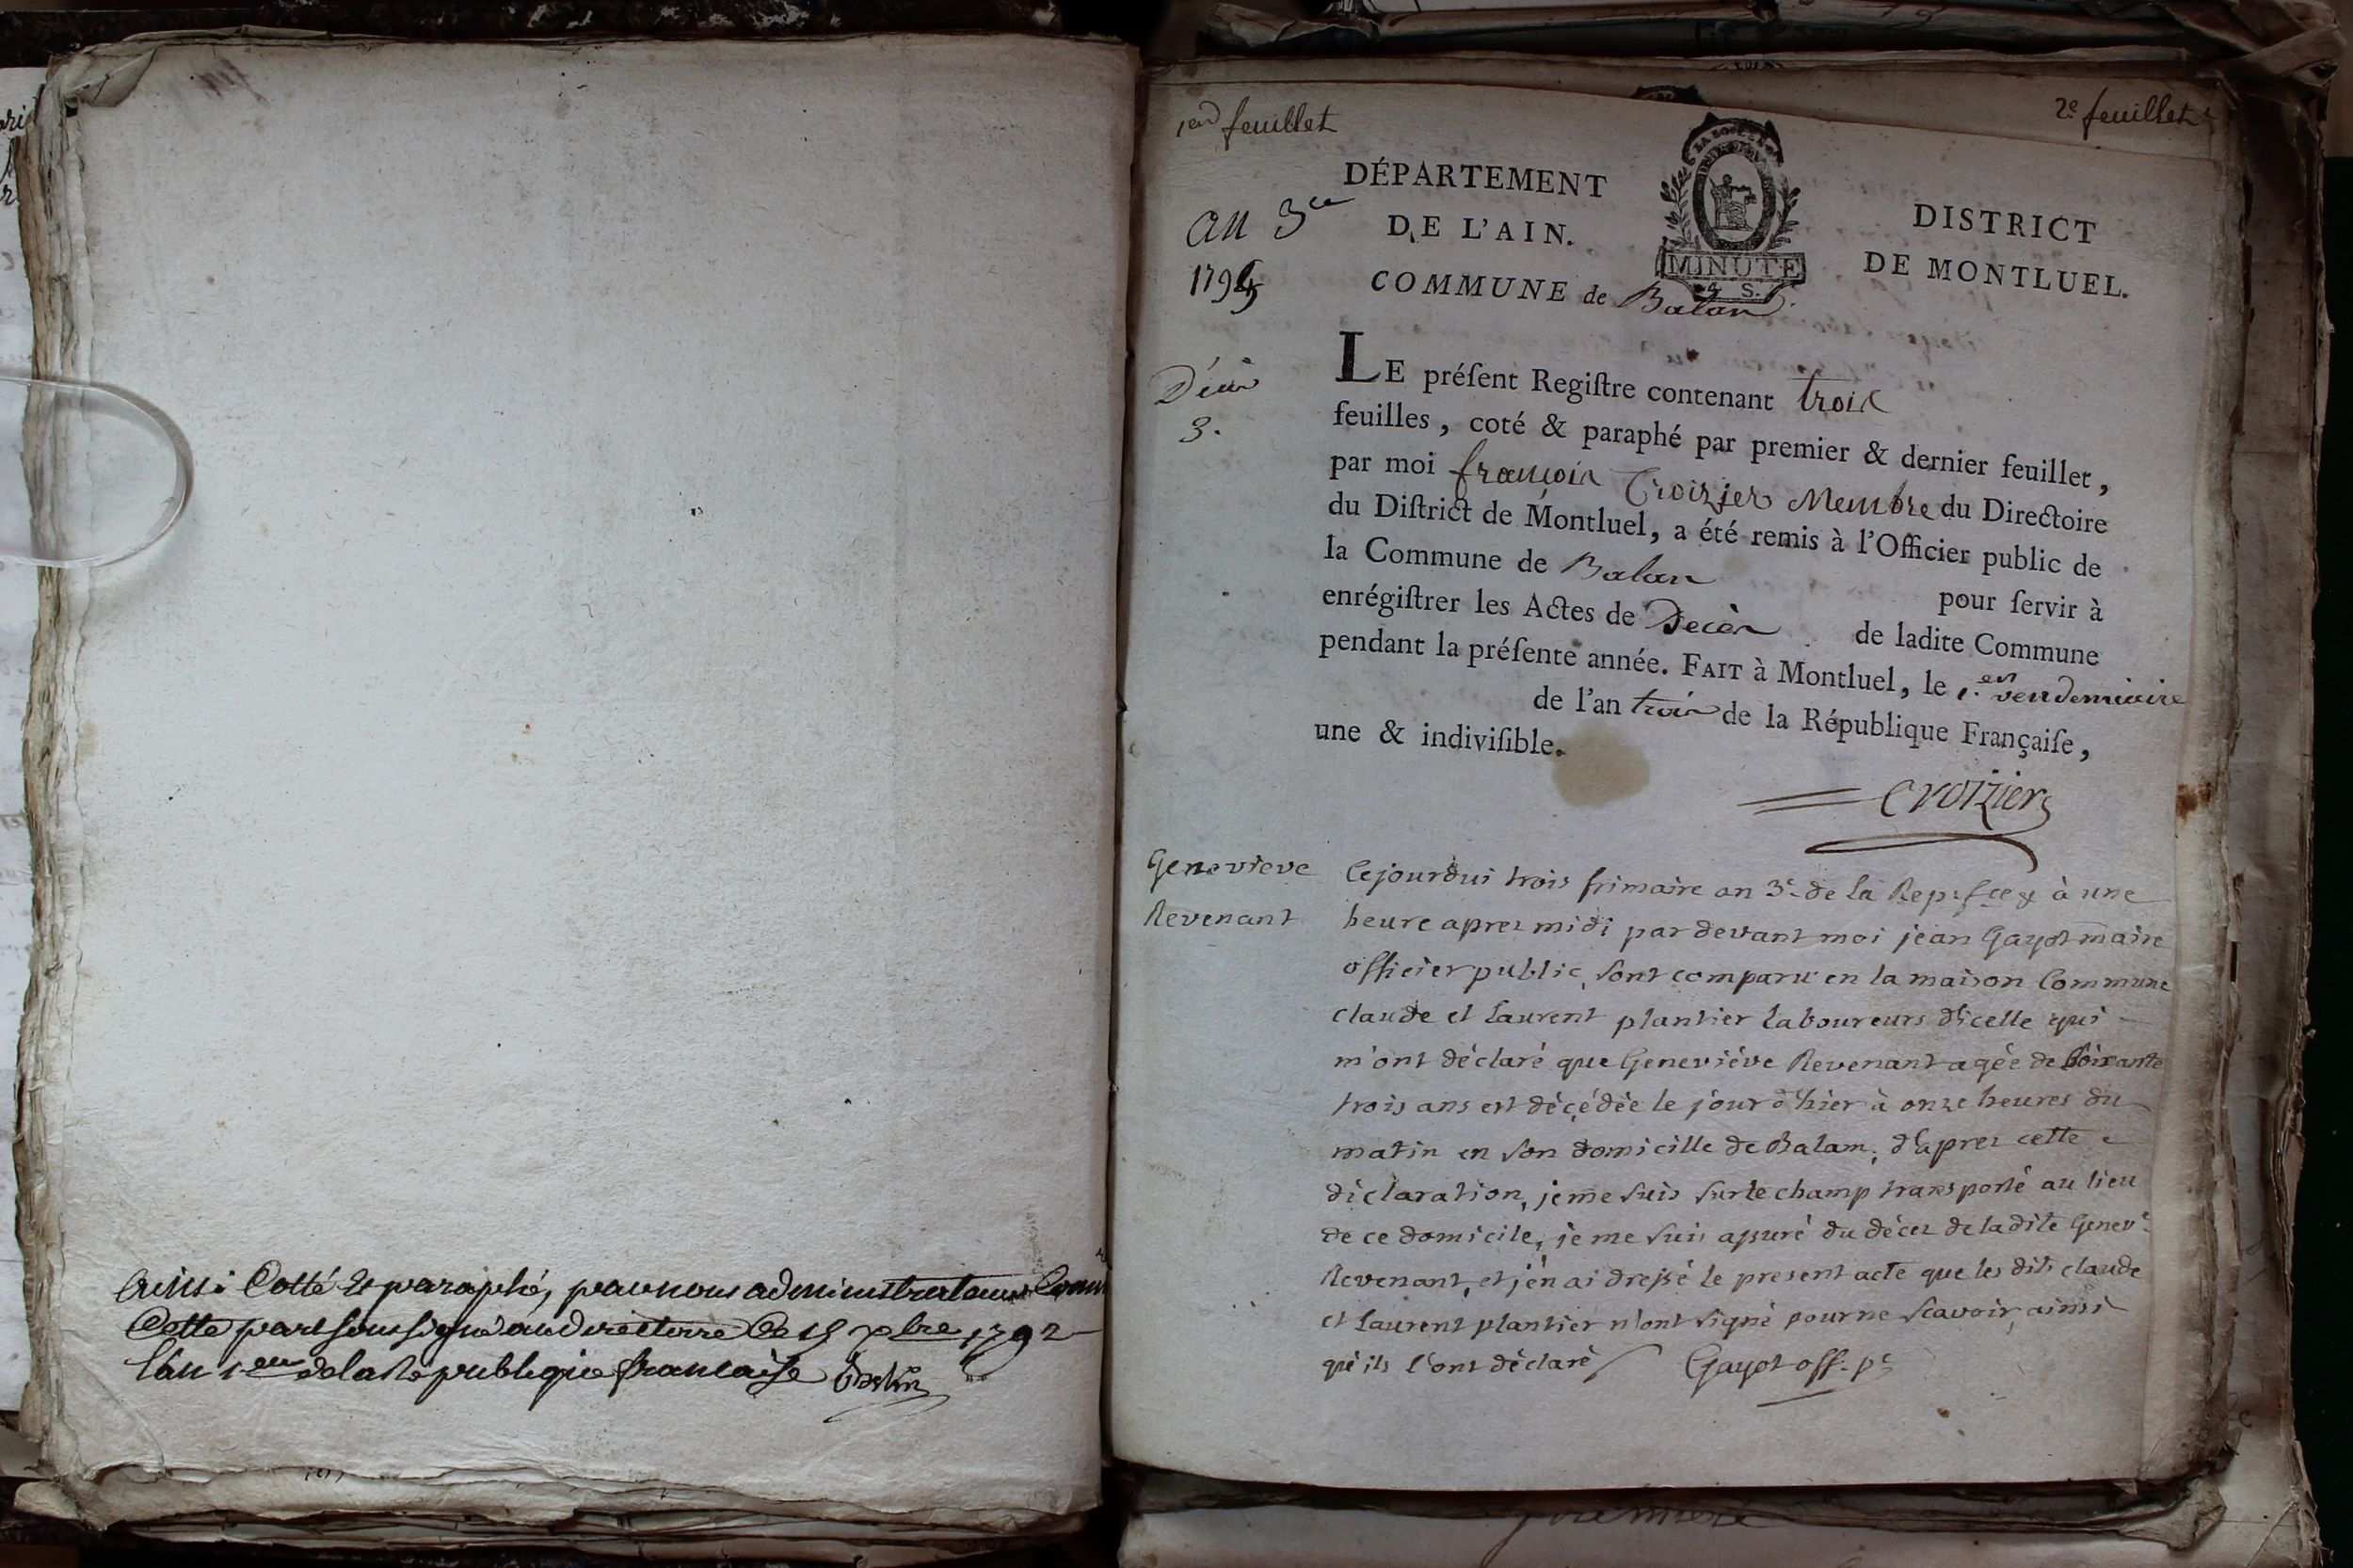 Ainsi Cotté et paraphé, par nous administrateur
Cotte part soussigné au directoire Ce 15 xbre 1792
l'an 1er de la Republique francaise
1er feuillet
2e feuillet
DÉPARTEMENT
DE L'AIN.
COMMUNE de Balan
MINUTE
4 S.
DISTRICT
DE MONTLUEL.
an 3ce
1794
3.
LE préſent Regiſtre contenant trois
feuilles, coté & paraphé par premier & dernier feuillet,
par moi françois Croizier Membre du Directoire
du Diſtrict de Montluel, a été remis à l'Officier public de
la Commune de Balan pour ſervir à
enrégiſtrer les Actes de Decès de ladite Commune
pendant la préſente année. FAIT à Montluel, le 1.er vendemiaire
de l'an trois de la République Françaiſe,
une & indiviſible.
Croizier
Genevieve
Revenant
Cejourdui trois frimaire an 3e de la Rep. fce à une
heure aprez midi par devant moi jean Gayot maire
officier public, sont comparu en la maison Commune
claude et Laurent plantier Laboureurs d'icelle qui
m'ont déclaré que Geneviéve Revenant agée de soixante
trois ans est décédée le jour d'hier à onze heures du
matin en son domicille de Balam, d'aprez cette
déclaration, je me suis sur le champ transporté au lieu
de ce domicile, je me suis assuré du décez de ladite Genev.e
Revenant, et j'en ai dressé le present acte que les dits claude
et Laurent plantier n'ont signé pour ne scavoir, ainsi
qu'ils l'ont déclaré Gayot off. pc
premiere